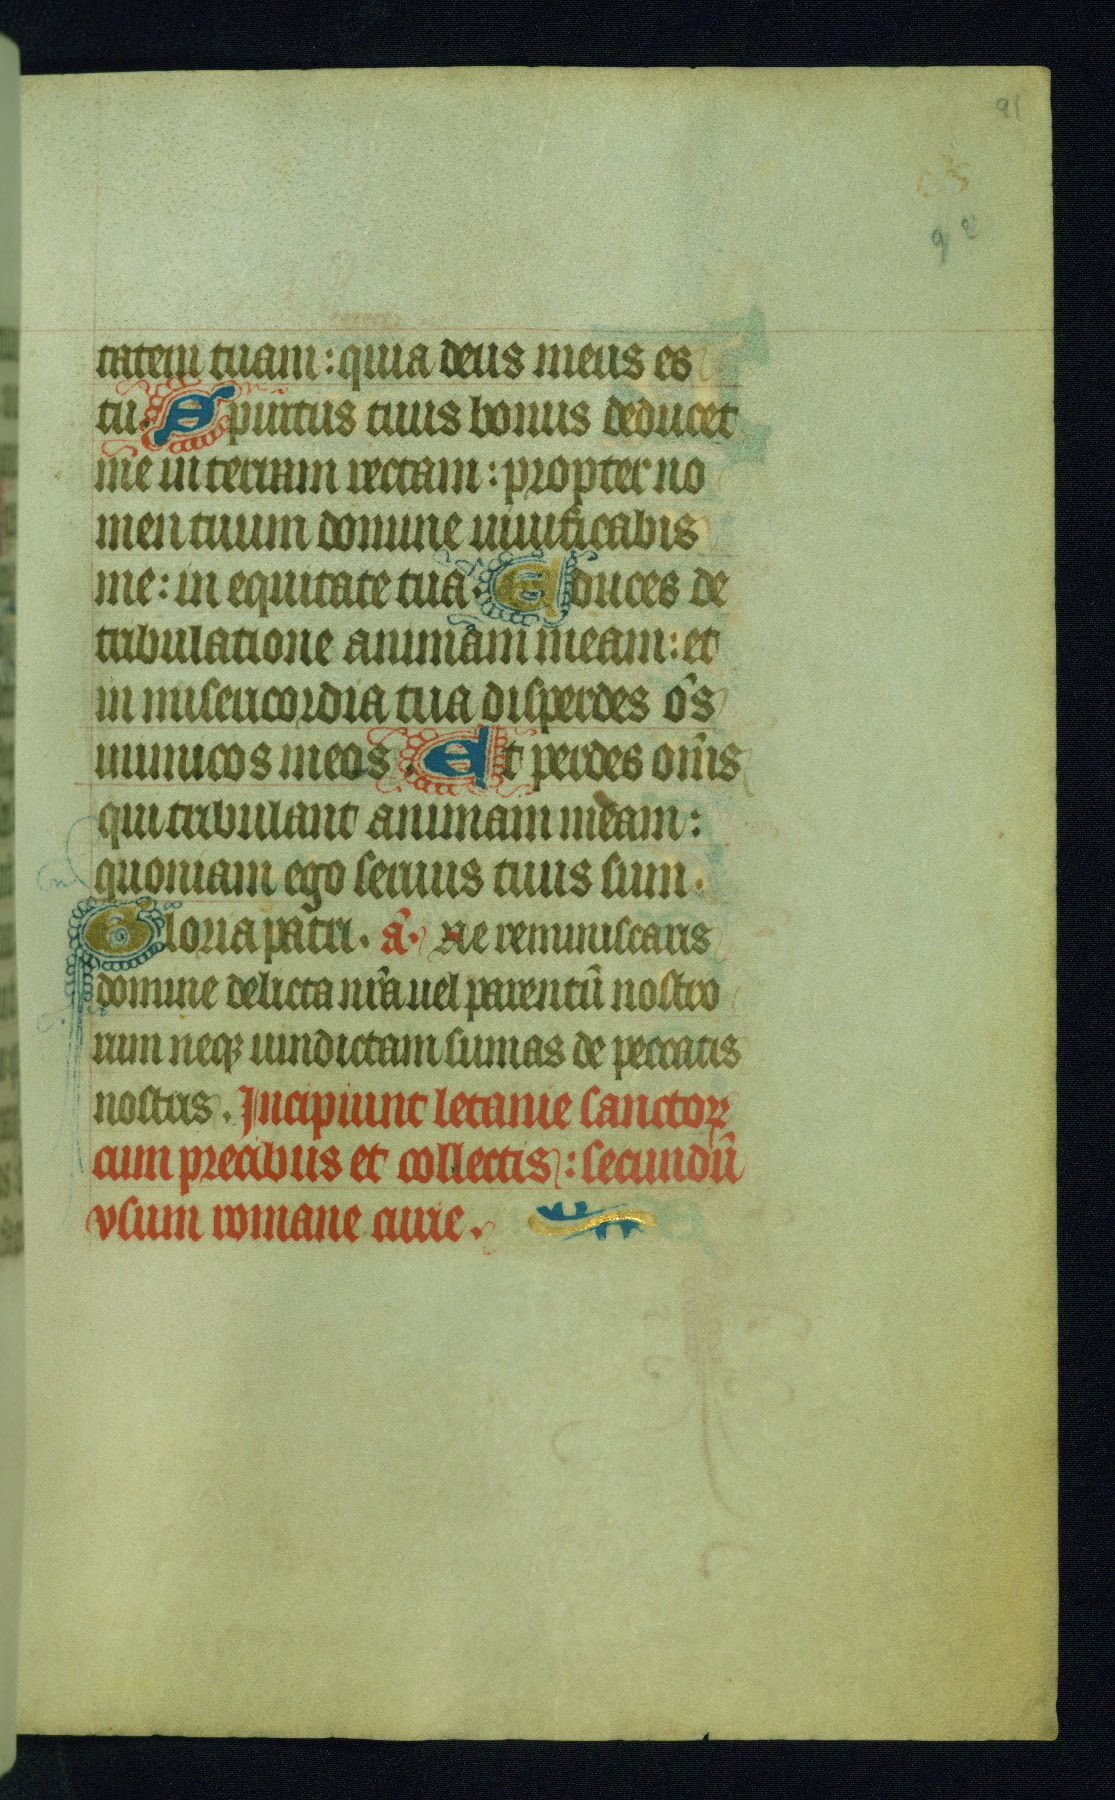 91
92
tatem tuam: quia deus meus es
tu. Spiritus tuus bonus deducet
me in terram rectam: propter no
men tuum domine uiuificabis
me: in equitate tua. Educes de
tribulatione animam meam: et
in misericordia tua disperdes oēs
inimicos meos. Et perdes om̄s
qui tribulant animam meam:
quoniam ego seruus tuus sum.
Gloria patri. añ. Ne reminiscaris
domine delicta nr̄a uel parentū nostro
rum neqꝫ uindictam sumas de peccatis
nostris. Incipiunt letanie sanctoꝝ
cum precibus et collectis: secundū
vsum romane curie.